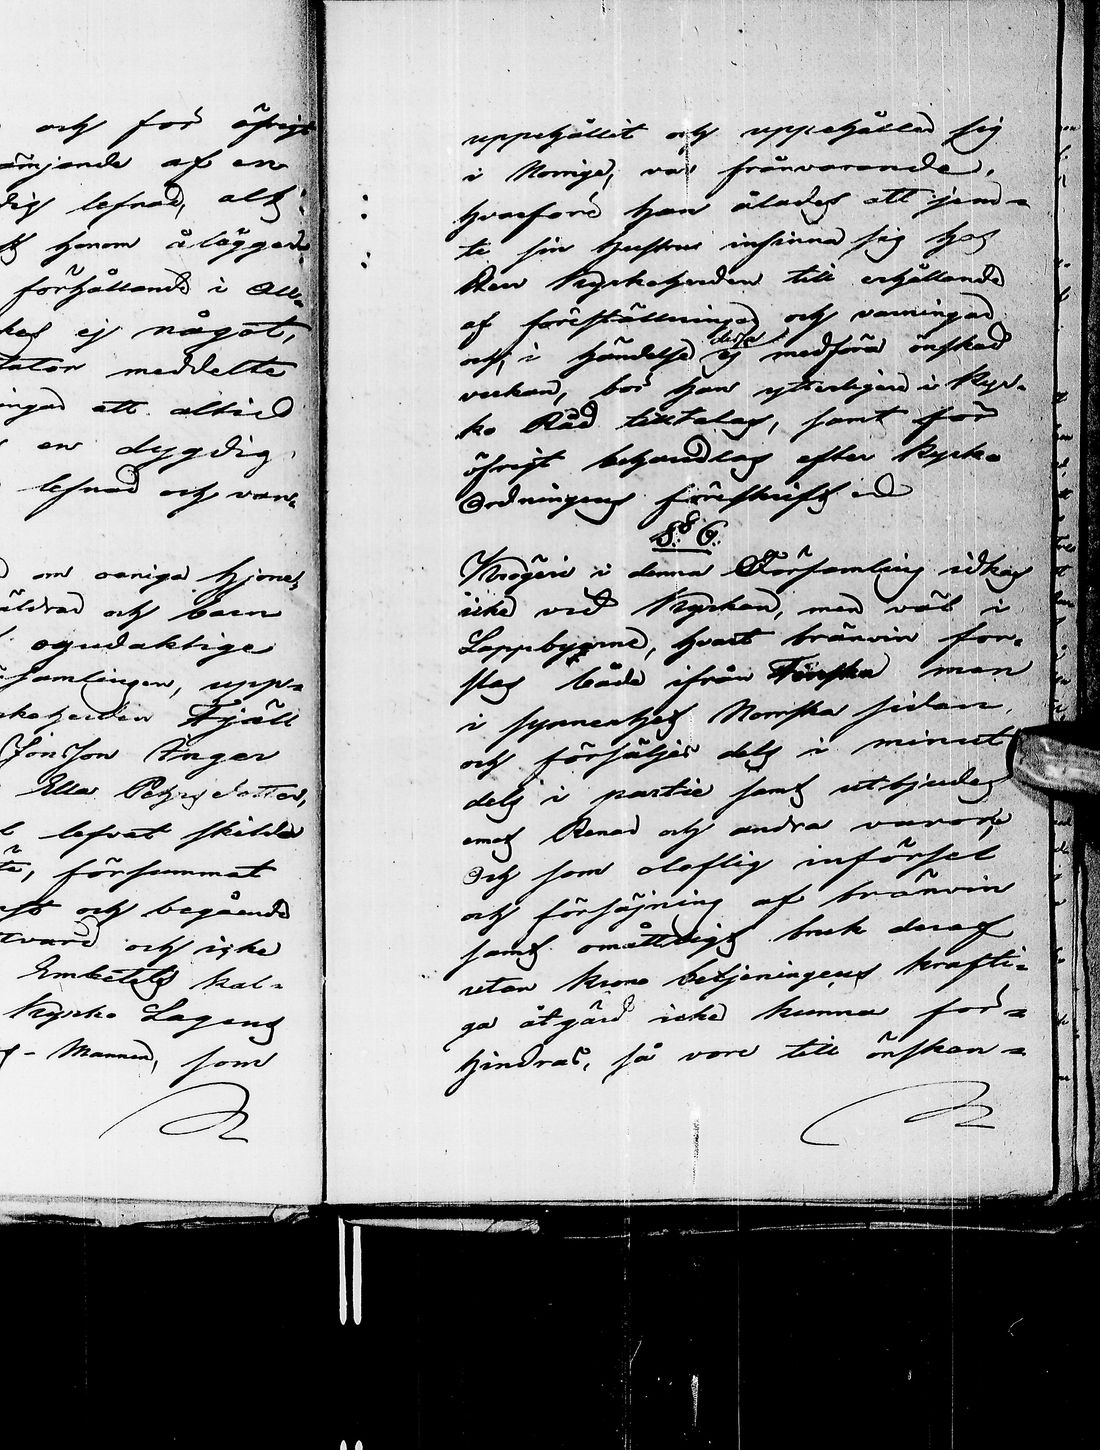 och för öfrigt
ämjande af en
dig lefnad, alt
honom ålägger
förhållande i
kes ej något,
tator meddelte
ingar att altid
en dygdig
lefnad och van-
om oeniga hjone,
äldrar och barn
ogudaktige
samlingen, upp-
kohcherden Fjäll
Jonsson Inger
Ella Pehrs dotter,
lefvat skilda
te, försummat
och begående
tvard och icke
Embetets kal-
Kyrko Lagens
Mannen, som
uppehållit och uppehåller sig
i Norrige, var frånvarande,
hvarföre han ålades att jem-
te sin hustru infinna sig hos
Herr Kyrkoherden till erhållande
af föreställningar och varningar
och, i händelse dessa ej medföra önskad
verkan, bör han ytterligare i Kyr-
ko Råd tilltalas, samt för
öfrigt behandlas efter Kyrko
Ordningens föreskrifter
§. 6.
Krögeri i denna Församling idkas
icke vid Kyrkan, men väl i
Lappbyarne, hvart bränvin for-
slas både ifrån Finska men
i synnerhet Norrska sidan,
och försäljes dels i minut
dels i partie samt utbjudes
emot Renar och andra varor,
Och som oloflig införsel
och försäljning af bränvin
samt omåttligt bruk deraf
utan krono betjeningens krafti-
ga åtgärd icke kunna för-
hindras, så vore till önskan-